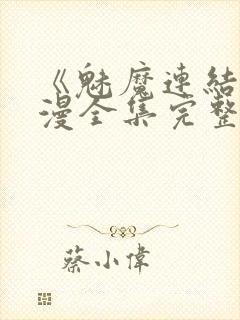 《魅魔連結
漫全集完整
蔡小偉